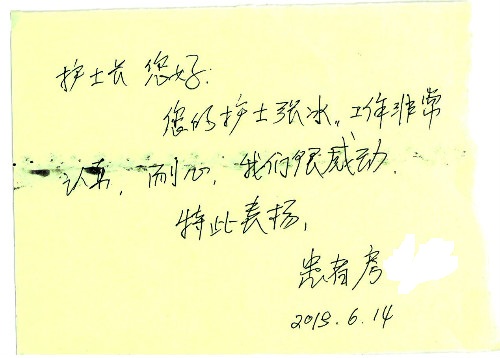 护士长 您好:
您的护士张冰,工作非常
认真,耐心,我们很感动.
特此表扬,
患者 房
2019.6.14